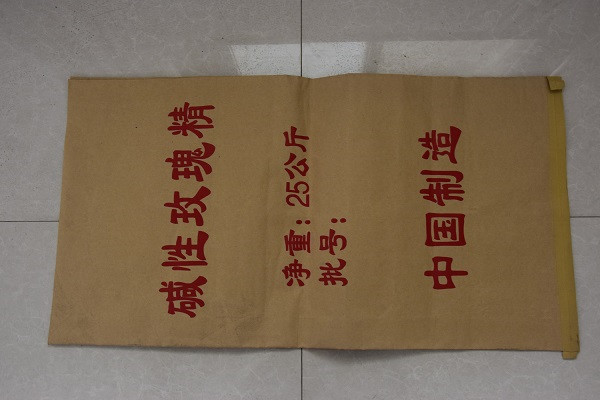 碱性玫瑰精
净重：25公斤
批号：
中国制造